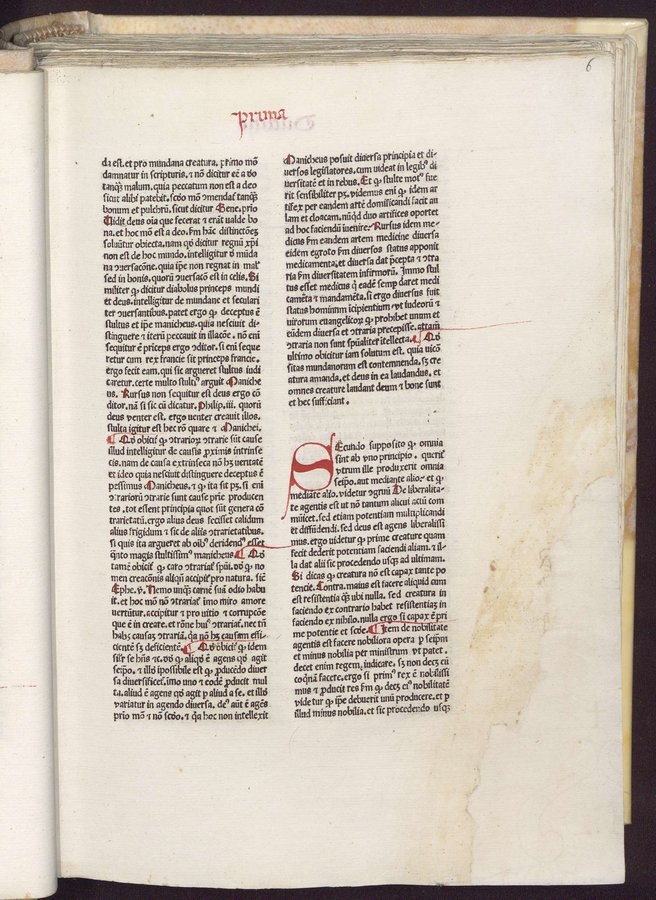 6
prima
da est. et pro mundana creatura. primo mō
damnatur in scripturis. ⁊ nō dicitur eē a vo
tanq̄ malum. quia peccatum non est a deo
sicut alibi patebit. scďo mō ꝯmendaf tanq̄
bonum et pulchrū. sicut dicitur Gene. prio
Uidit deus oīa que fecerat ⁊ erāt valde bo
na. et hoc mō est a deo. fm hāc distinctōeȝ
soluūtur obiecta. nam qƺ dicitur regnū xp̄i
non est de hoc mundo. intelligitur ƺ mūda
na ꝯuersacōne. quia ip̄e non regnat in mal
sed in bonis. quorū ꝯuersacō est in celis. Si
militer qꝫ dicitur diabolus princeps mundi
et deus. intelligitur de mundane et seculari
ter ꝯuersantibus. patet ergo qꝫ deceptus ē
stultus et ip̄e manicheus. quia nesciuit di-
stinguere ⁊ iterū peccauit in illacōe. nō enī
sequitur ē prīceps ergo ꝯditor. si enī seque
retur cum rex francie sit princeps francie.
ergo fecit eam. qui sic argueret stultus iudi
caretur. certe multo stultiꝰ arguit Maniche
us. Rursus non sequitur est deus ergo cō
ditor. nā si sic cū dicatur. Philip. iii. quorū
deus venter est. ergo venter creauit illos.
stulta igitur est hec rō quare ⁊ Manichei.
Qƺ obicit qꝫ ꝯtrariorꝝ ꝯtrarie sūt cause
illud intelligitur de causis ꝓximis intrinse
cis. nam de causa extrinseca nō hȝ veritatē
et ideo quia nesciuit distinguere deceptus ē
pessimus Manicheus. ⁊ qꝫ ita sit pȝ. si eni
ꝯtrariorū ꝯtrarie sunt cause prīe producen
tes. tot essent principia quot sūt genera cō
trarietatū. ergo alius deus fecisset calidum
alius frigidum ⁊ sic de aliis ꝯtrarietatibus.
si quis ita argueret ab oibꝰ deridendꝰ esset
q̄nto magis stultissimꝰ manicheus. Qƺ
tamē obicit qꝫ caro ꝯtrariaf spūi. ƺƺ qꝫ no
men creacōnis aliqn̄ accipif pro natura. sic
Ephe. v. Nemo unq̄ carnē suā odio habu
it. et hoc mō nō ꝯtrariaf imo miro amore
uertitur. accipitur ⁊ pro vitio ⁊ corrupcōe
que ē in carne. et rōne huiꝰ ꝯtrariaf. nec tn̄
habȝ causaȝ ꝯtrariā. qa nō hȝ causam effi-
cientē sȝ deficientē. Qƺ obicit qꝫ idem
silr se hn̄s ⁊c. ƺƺ qꝫ aliqƺ ē agens qƺ agit
seip̄o. ⁊ illƺ ipossibile est qꝫ ꝓducēdo diuer
sa diuersificef. imo uno ⁊ eodē ꝓducit mul
ta. aliud ē agens qƺ agit p aliud a se. et illƺ
variatur in agendo diuersa. deꝰ aūt ē agēs
prio mō ⁊ nō scďo. ⁊ qa hoc non intellexit
Manicheus posuit diuersa principia et di-
uersos legislatores. cum uideat in legibꝰ di
uersitatē et in rebus. Et qꝫ stulte motꝰ fue
rit sensibiliter pȝ. videmus eni qꝫ idem ar
tifex per eandem artē domificandi facit au
lam et cloacam. nūqd duo artifices oportet
ad hoc faciendū inuenire. Rursus idem me-
dicus fm eandem artem medicine diuersa
eidem egroto fm diuersos status apponit
medicamenta. et diuersa dat p̄cepta ⁊ ꝯtra
ria fm diuersitatem infirmorū. Immo stul
tus esset medicus q̄ eadē semp̄ daret medi
camēta ⁊ mandamēta. si ergo diuersus fuit
status hominum incipientium vt iudeorū ⁊
uirorum euangelicorꝝ qꝫ prohibet unum et
eundem diuersa et ꝯtraria precepisse. attam
ꝯtraria non sunt spūaliter itellecta. Qƺ
ultimo obicitur iam solutum est. quia vicō
sitas mundanorum est contemnenda. sȝ cre
atura amanda. et deus in ea laudandus. et
omnes creature laudant deum ⁊ bone sunt
et hec sufficiant.
SEcundo supposito qꝫ omnia
sint ab vno principio. querit̄
vtrum ille produxerit omnia
seip̄o. aut mediante alio. et qꝫ
mediāte alio. videtur ꝯgruū De liberalita-
te agentis est ut nō tantum alicui actū com
mūicet. sed etiam potentiam multiplicandi
et diffūdendi. sed deus est agens liberalissi
mus. ergo uidetur qꝫ prime creature quam
fecit dederit potentiam faciendi aliam. ⁊ il-
la dat alii sic procedendo usqꝫ ad ultimam.
Si dicas qꝫ creatura nō est capax tante po
tencie. Contra. maius est facere aliquid cum
est resistentia q̄ȝ ubi nulla. sed creatura in
faciendo ex contrario habet resistentiaȝ in
faciendo ex nihilo. nulla ergo si capax ē pri
me potentie et scďe. Item de nobilitate
agentis est facere nobiliora opera p̱ seip̄m
et minus nobilia per ministrum vt patet.
decet enim regem. iudicare. sȝ non decȝ eū
coq̄nā facere. ergo si primꝰ rex ē nobilissi
mus ⁊ ꝓducit res fm qꝫ decȝ eiꝰ nobilitatē
vide tur qꝫ ip̄e debuerit unū producere. et p̱
illud minus nobilia. et sic procedendo usqꝫ